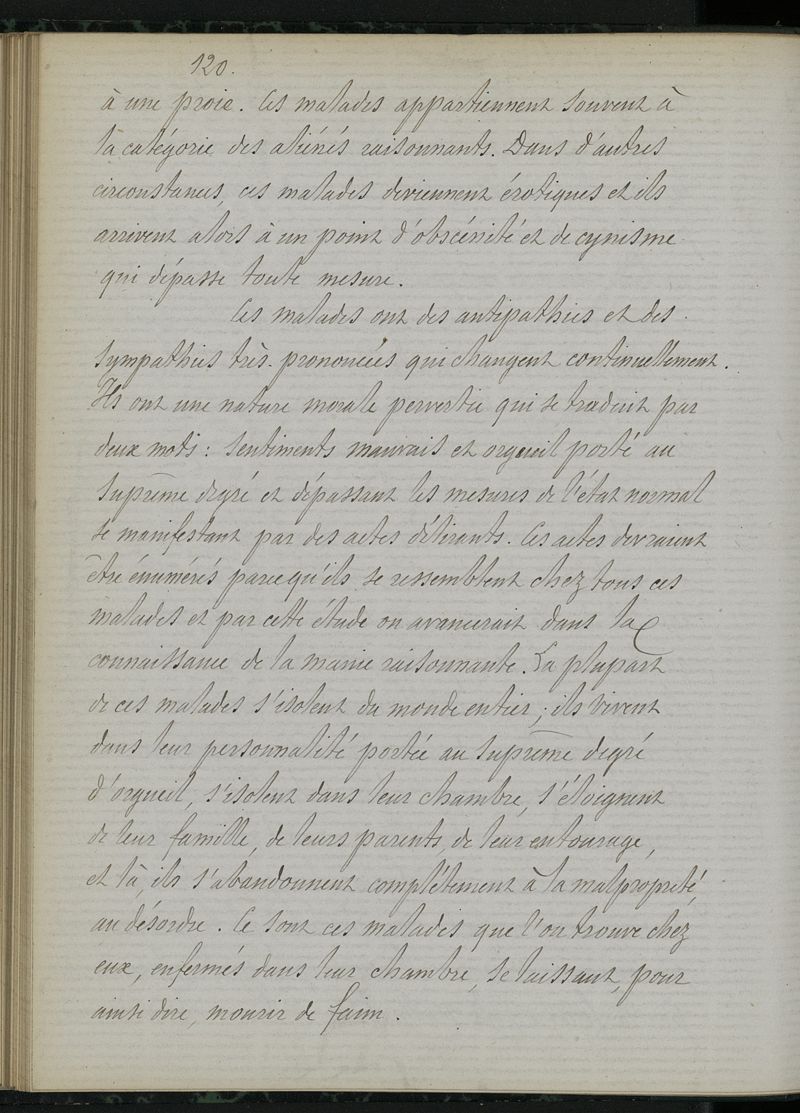 120.
à une proie. Ces malades appartiennent souvent à
la catégorie des aliénés raisonnants. Dans d'autres
circonstances, ces malades deviennent érotiques et ils
arrivent alors à un point d'obscénité et de cynisme
qui dépasse toute mesure.
Ces malades ont des antipathies et des
sympathies très-prononcées qui changent continuellement.
Ils ont une nature morale pervertie qui se traduit par
deux mots : sentiments mauvais et orgueil porté au
suprême degré et dépassant les mesures de l'état normal
se manifestant par des actes délirants. Ces actes devraient
être énumérés parce qu'ils se ressemblent chez tous ces
malades et par cette étude on avancerait dans la
connaissance de la manie raisonnante. La plupart
de ces malades s'isolent du monde entier ; ils vivent
dans leur personnalité portée au suprême degré
d'orgueil, s'isolent dans leur chambre, s'éloignent
de leur famille, de leurs parents, de leur entourage,
et là, ils s'abandonnent complétement à la malpropreté,
au désordre. Ce sont ces malades que l'on trouve chez
eux, enfermés dans leur chambre, se laissant, pour
ainsi dire, mourir de faim.